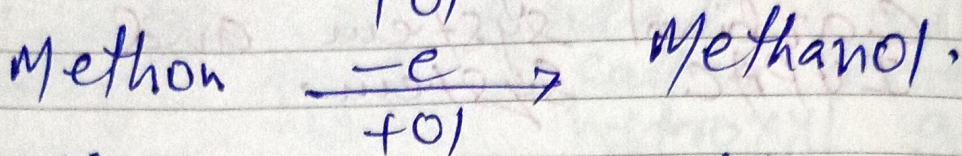 Methon —e→ Methanol.
+ol